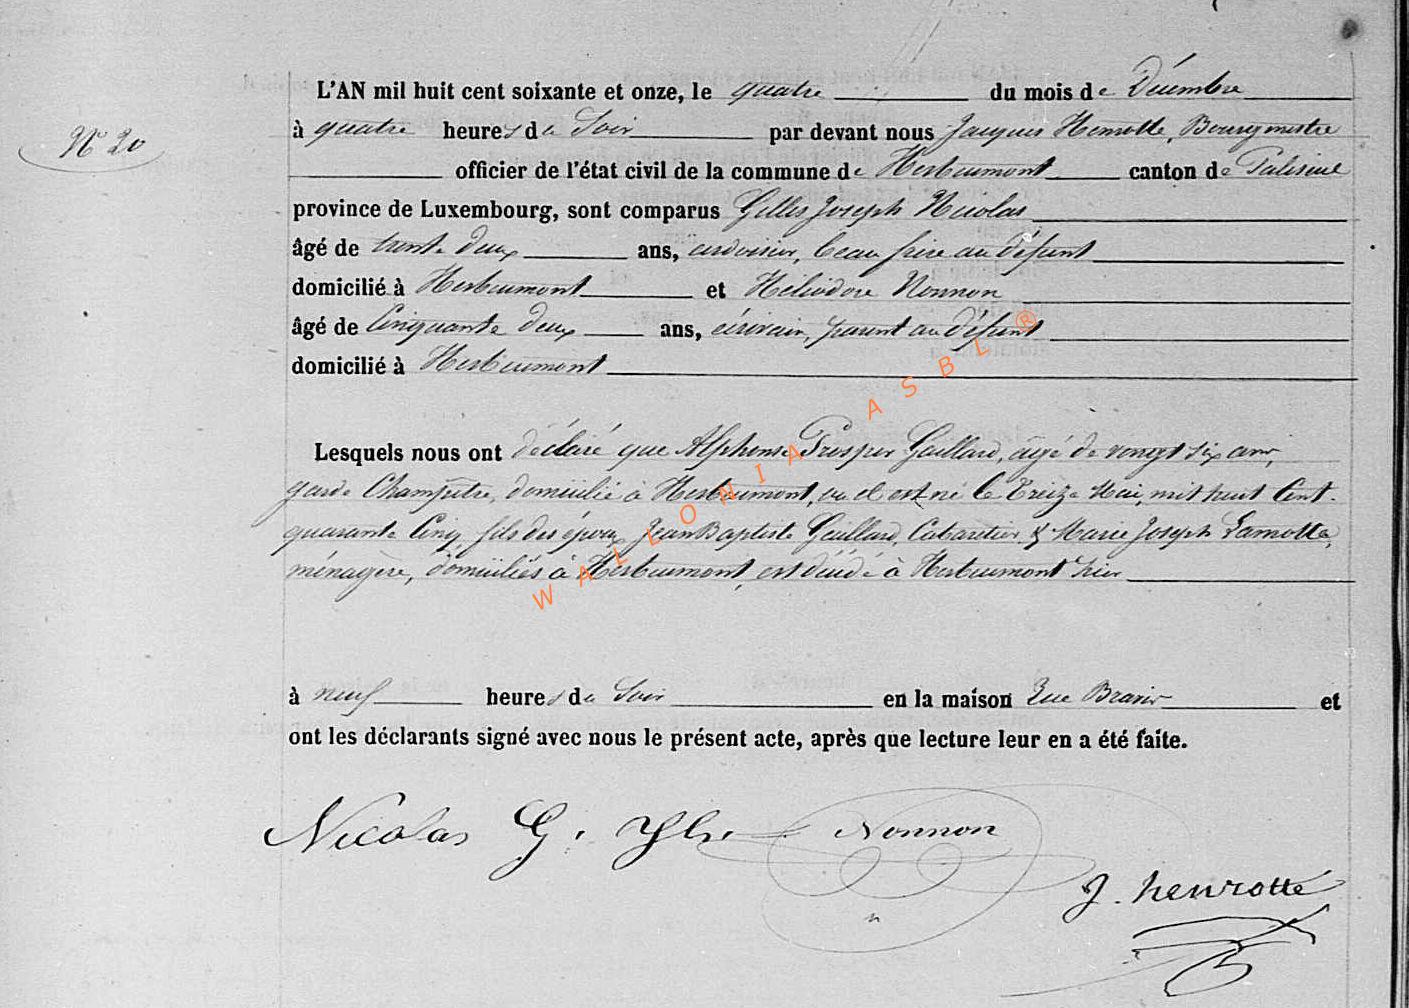 L'AN mil huit cent soixante et onze, le quatre du mois de Décembre
N° 20
à quatre heures du Soir par devant nous Jacques Henrotte, Bourgmestre
officier de l'état civil de la commune de Herbeumont canton de Paliseul
province de Luxembourg, sont comparus Gilles Joseph Nicolas
âgé de trente deux ans, ardoisier, beau frère au défunt
domicilié à Herbeumont et Héliodore Nonnon
âgé de Cinquante deux ans, écrivain, parent au défunt
domicilié à Herbeumont
Lesquels nous ont déclaré que Alphonse Prosper Gaillard, âgé de vingt six ans,
garde Champêtre, domicilié à Herbeumont, où il est né le Treize Mai, mil huit Cent
quarante Cinq fils des époux Jean Baptiste Gaillard, Cabaretier & Marie Joseph Lamotte,
ménagère, domiciliés à Herbeumont, est décédé à Herbeumont hier
à neuf heures du Soir en la maison Rue et
ont les déclarants signé avec nous le présent acte, après que lecture leur en a été faite.
Nicolas G. Jh. Nonnon
J. henrotte
WALLONIA ASBL ®